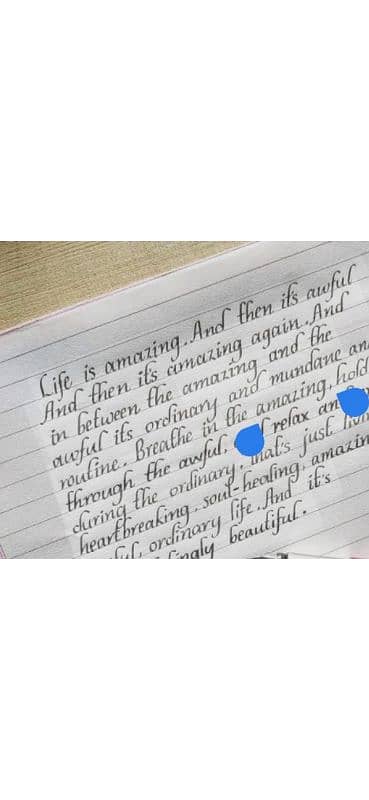 Life is amazing. And then it's awful
And then it's amazing again. And
in between the amazing and the
awful its ordinary and mundane an
routine. Breathe in the amazing, hold
through the awful, relax an
during the ordinary. that's just
heartbreaking, soul-healing, amazin
ful, ordinary life. And it's
ingly beautiful.